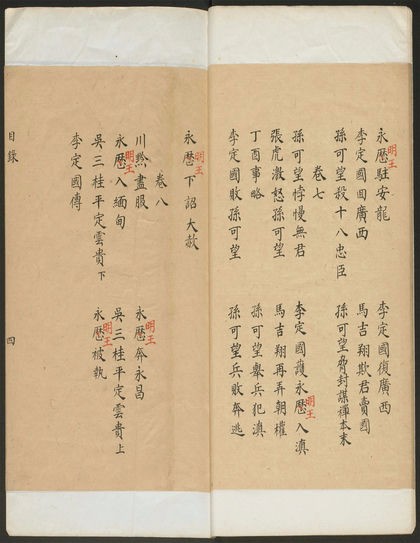 永歷駐安龍 李定國復廣西
明王
李定國囘廣西 馬吉翔欺君賣國
孫可望殺十八忠臣 孫可望脅封謀禪本末
卷七
孫可望悖慢無君 李定國護永歷入滇
明王
張虎激怒孫可望 馬吉翔再弄朝權
丁酉事略 孫可望舉兵犯滇
李定國敗孫可望 孫可望兵敗奔逃
永歷下詔大赦
明王
卷八
川黔盡服 永歷奔永昌
明王
永歷入緬甸 吳三桂平定雲貴上
明王
吳三桂平定雲貴下 永歷被執
明王
李定國傳
目錄 四